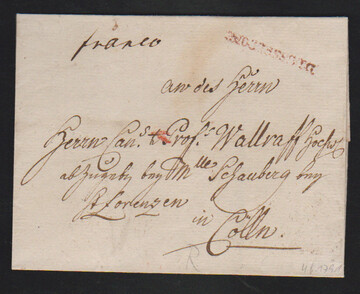 franco
DUSSELDORF
an des Herrn
Herrn Can. & Prof. Wallraff Hochw
abzugeben bey Mlle Schauberg bey
St Lorenzen
in
Cölln.